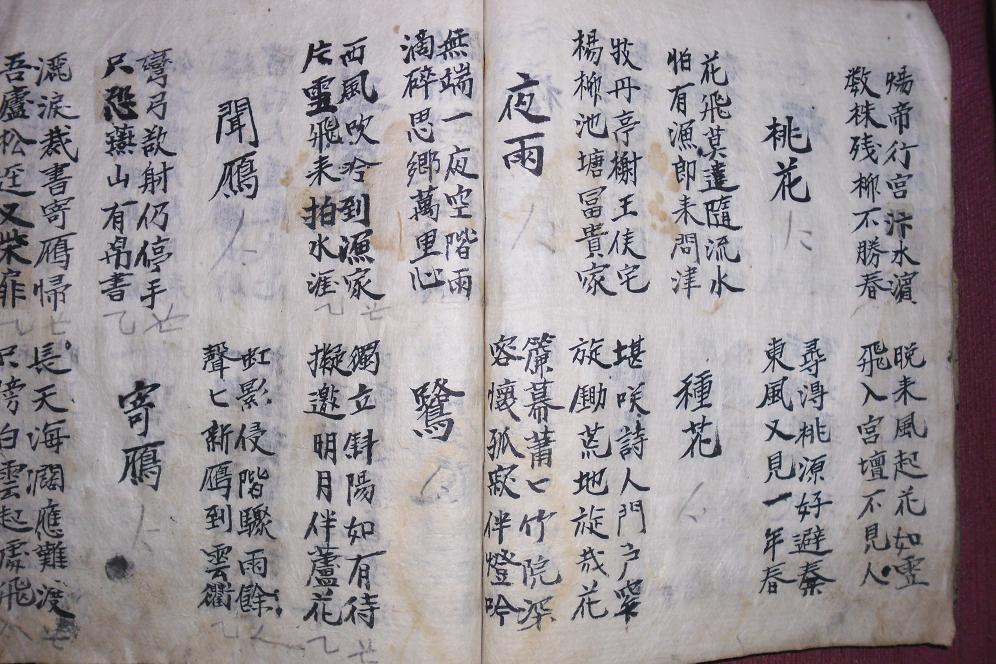 煬帝行宫汴水濵
数株残柳不勝春
晚来風起花如雪
飛入宫墻不見人
桃花
尋淂桃源好避秦
東風又見一年春
花飛莫遣隨流水
怕有漁郎来問津
種花
牧丹亭榭王侯宅
楊柳池塘冨貴家
堪咲詩人門户窄
旋働荒地旋栽花
夜雨
簾幕蕭匕竹院深
客懷孤寂伴燈吟
無端一夜空階雨
滴碎思鄉萬里心
鷺
西風吹冷到漁家
片雪飛来拍水涯
獨立斜陽如有待
擬邀明月伴蘆花
聞鴈
虹影侵階驟雨餘
聲匕新鴈到雲衢
彎弓欲射仍停手
只恐燕山有帛書
寄鴈
灑淚裁書寄鴈歸
吾廬松逕又柴扉
長天海濶應難渡
只傍白雲起處飛